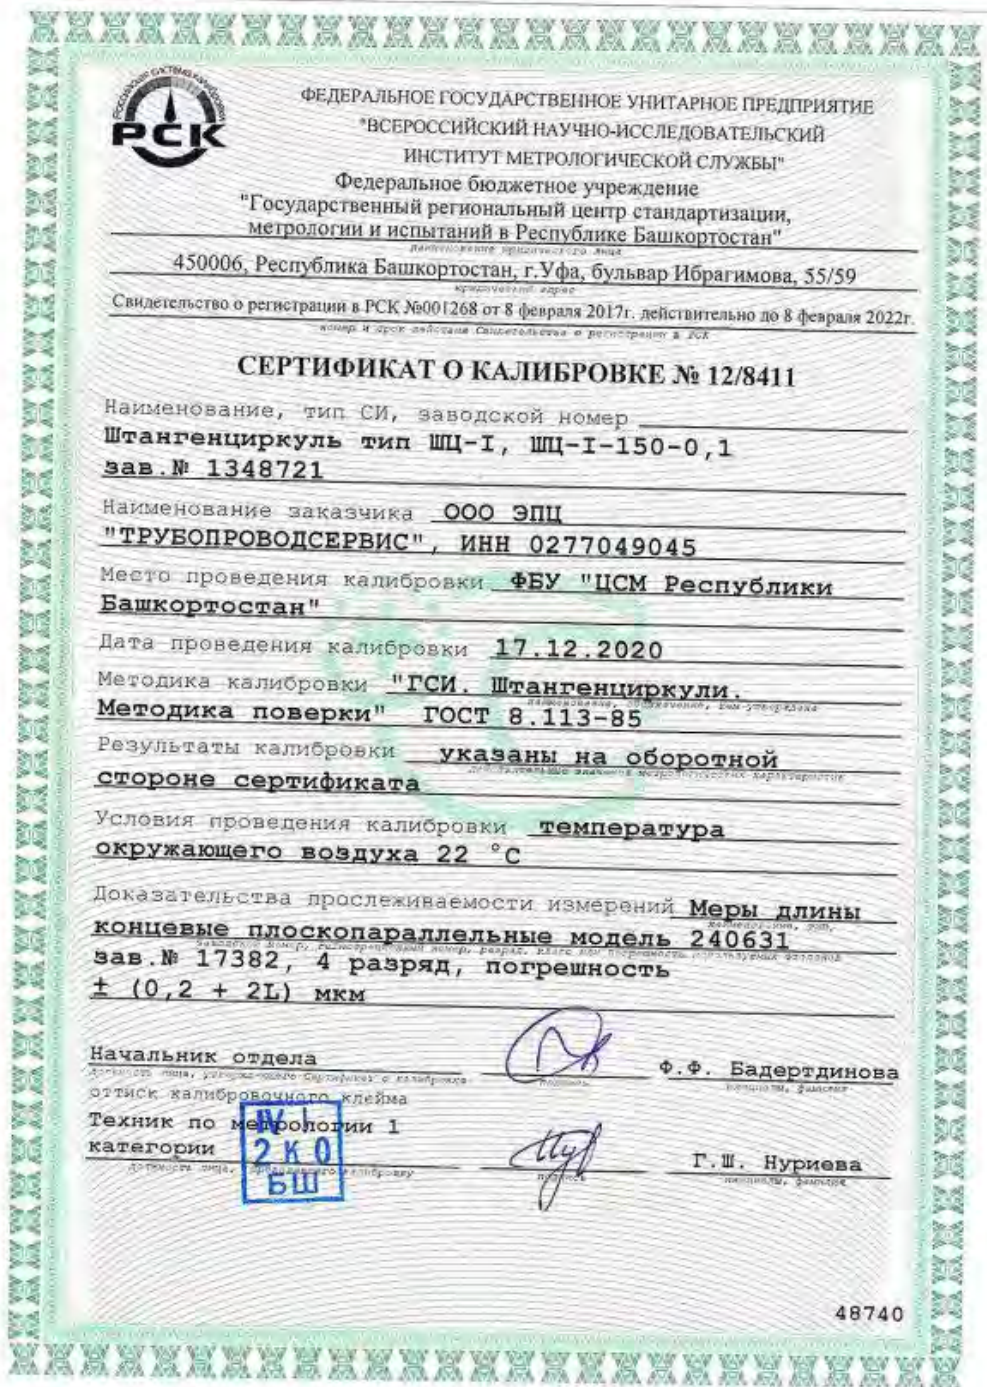 Российская система калибровки
РСК
ФЕДЕРАЛЬНОЕ ГОСУДАРСТВЕННОЕ УНИТАРНОЕ ПРЕДПРИЯТИЕ
"ВСЕРОССИЙСКИЙ НАУЧНО-ИССЛЕДОВАТЕЛЬСКИЙ
ИНСТИТУТ МЕТРОЛОГИЧЕСКОЙ СЛУЖБЫ"
Федеральное бюджетное учреждение
"Государственный региональный центр стандартизации,
метрологии и испытаний в Республике Башкортостан"
наименование юридического лица
450006, Республика Башкортостан, г.Уфа, бульвар Ибрагимова, 55/59
юридический адрес
Свидетельство о регистрации в РСК №001268 от 8 февраля 2017г. действительно до 8 февраля 2022г.
номер и срок действия Свидетельства о регистрации в РСК
СЕРТИФИКАТ О КАЛИБРОВКЕ № 12/8411
Наименование, тип СИ, заводской номер
Штангенциркуль тип ШЦ-I, ШЦ-I-150-0,1
зав.№ 1348721
Наименование заказчика ООО ЭПЦ
"ТРУБОПРОВОДСЕРВИС", ИНН 0277049045
Место проведения калибровки ФБУ "ЦСМ Республики
Башкортостан"
Дата проведения калибровки 17.12.2020
Методика калибровки "ГСИ. Штангенциркули.
наименование, обозначение, кем утверждена
Методика поверки" ГОСТ 8.113-85
Результаты калибровки указаны на оборотной
действительные значения метрологических характеристик
стороне сертификата
Условия проведения калибровки температура
окружающего воздуха 22 °С
Доказательства прослеживаемости измерений Меры длины
наименование, тип,
концевые плоскопараллельные модель 240631
заводской номер, регистрационный номер, разряд, класс или погрешность используемых эталонов
зав.№ 17382, 4 разряд, погрешность
± (0,2 + 2L) мкм
Начальник отдела Ф.Ф. Бадертдинова
должность лица, утвердившего Сертификат о калибровке подпись инициалы, фамилия
оттиск калибровочного клейма
Техник по метрологии 1
категории Г.Ш. Нуриева
должность лица, проводившего калибровку подпись инициалы, фамилия
IV I
2 К 0
БШ
48740